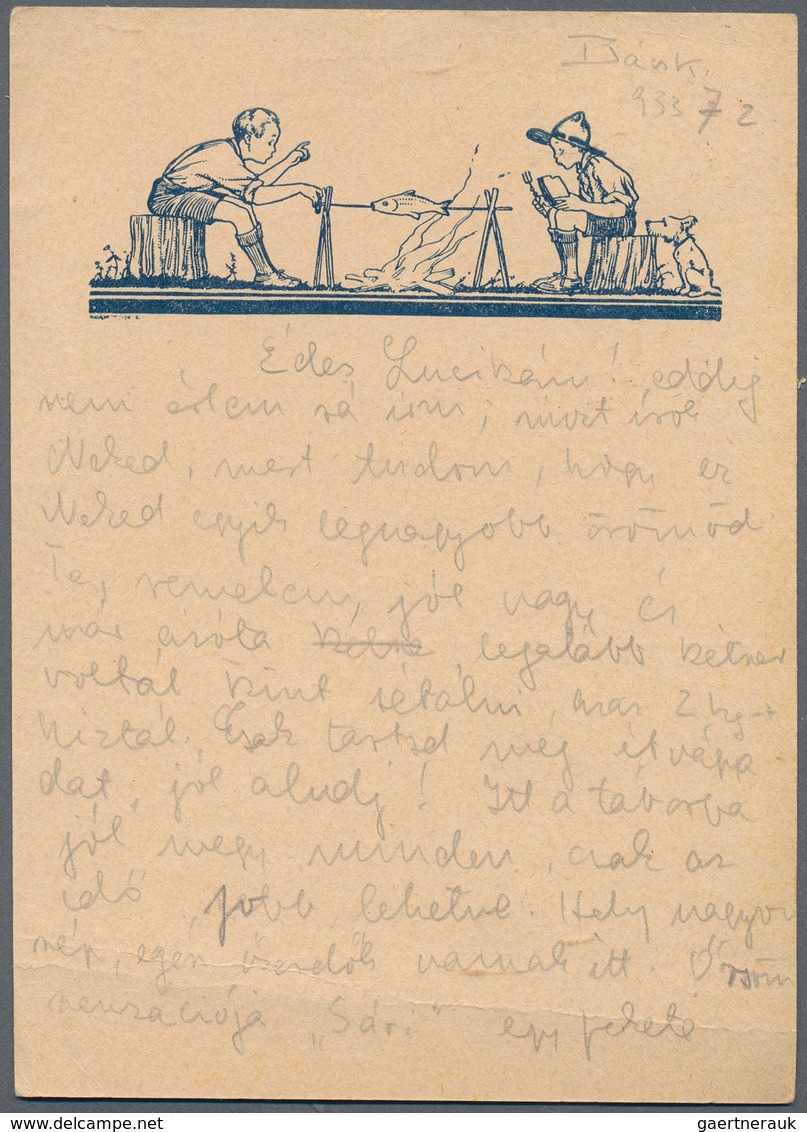 Bánk,
933 7 2
Édes Lucikám! eddig
nem értem rá írni, most írok
Neked, mert tudom, hogy ez
Neked egyik legnagyobb örömöd
Te, remélem, jól vagy és
már azóta kétsz legalább kétszer
voltál kint sétálni, már 2 kg-t
híztál. Csak tartsd meg étvágya-
dat, jól aludj! Itt a táborba
jól megy minden, csak az
idő jobb lehetne. Hely nagyon
szép, egész erdők vannak itt. Őrsöm
szenzációja „Sári" egy fekete
gaertnerauk